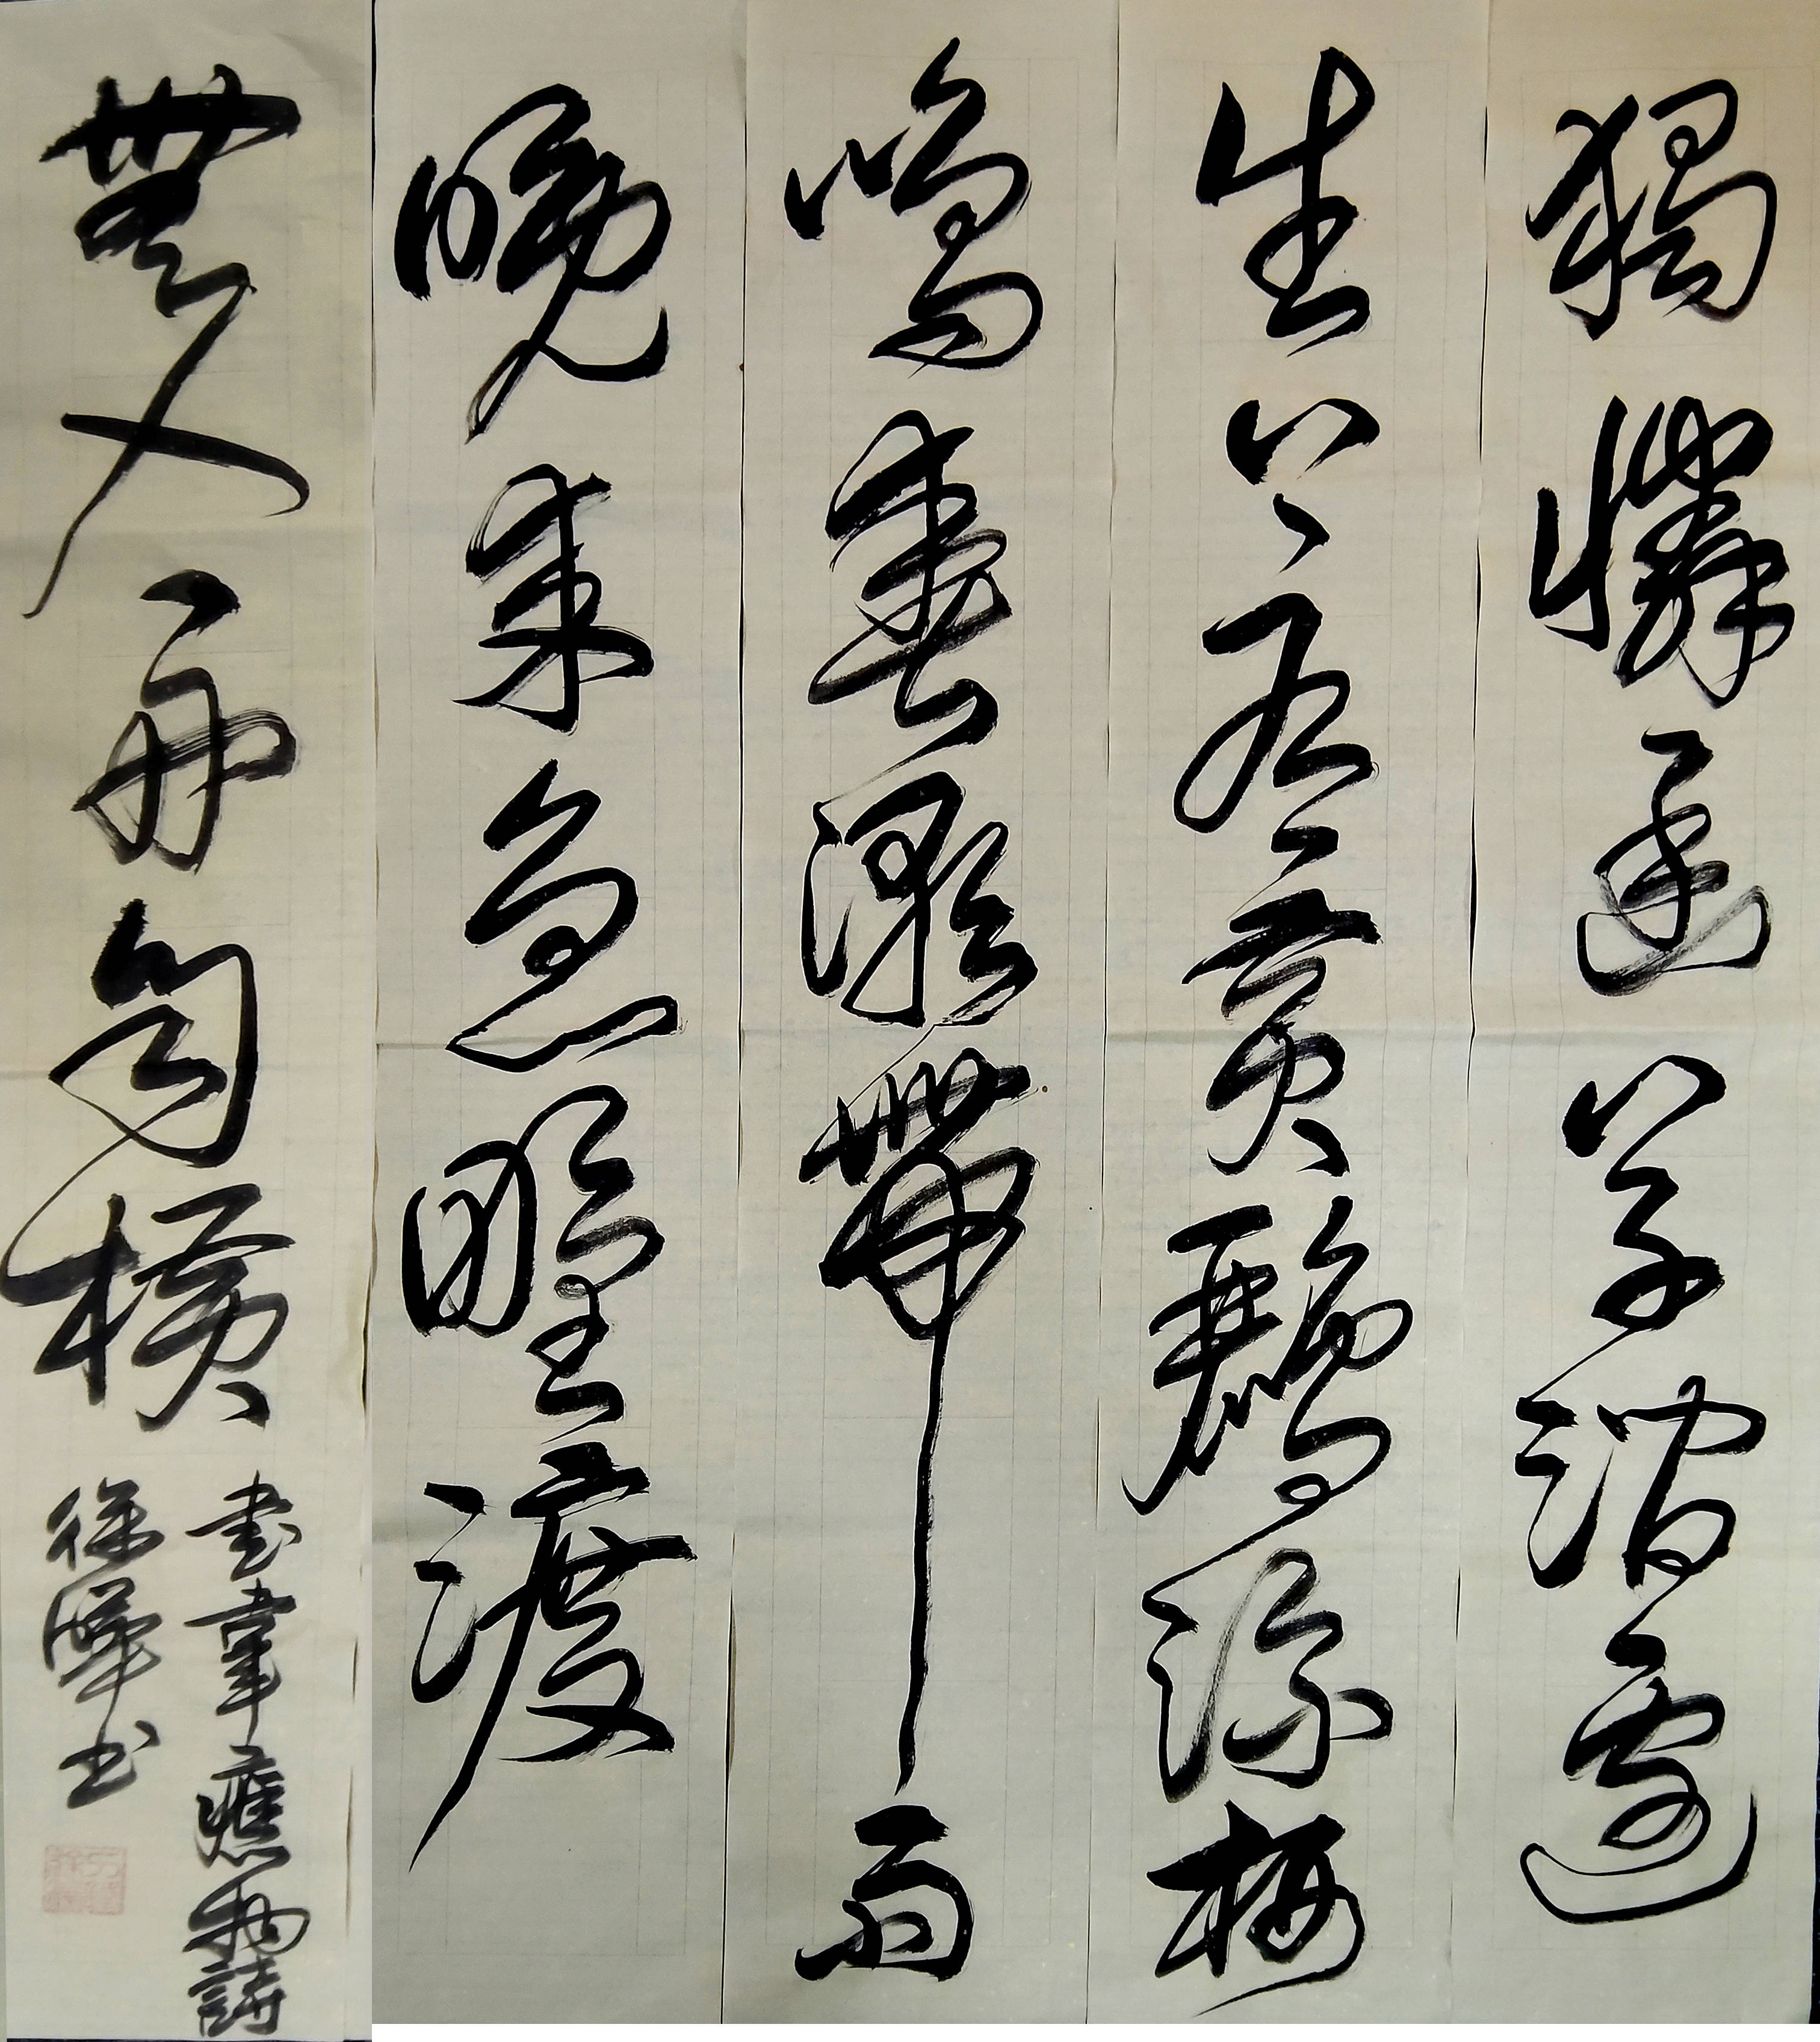 獨憐幽草澗邊
生上有黃鸝深樹
鳴春潮帶雨
晚來急野渡
無人舟自橫
書韋應物詩
徐 书